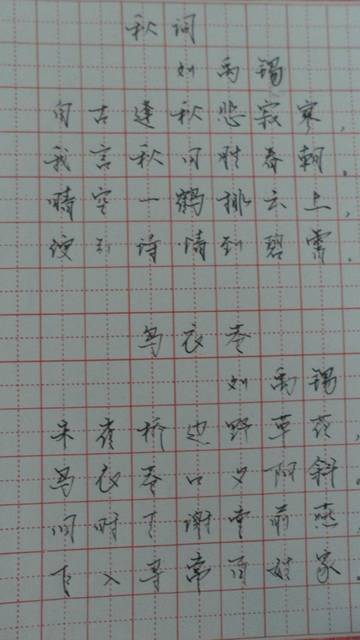 秋词
刘禹锡
自古逢秋悲寂寥,
我言秋日胜春朝。
晴空一鹤排云上,
便引诗情到碧霄。
乌衣巷
刘禹锡
朱雀桥边野草花,
乌衣巷口夕阳斜.
旧时王谢堂前燕,
飞入寻常百姓家.